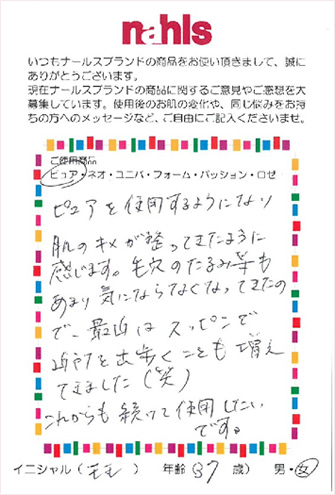 nahls
いつもナールスブランドの商品をお使い頂きまして、誠に
ありがとうございます。
現在ナールスブランドの商品に関するご意見やご感想を大
募集しています。使用後のお肌の変化や、同じ悩みをお持
ちの方へのメッセージなど、ご自由にご記入くださいませ。
ご使用商品
ピュア・ネオ・ユニバ・フォーム・パッション・ロゼ
ピュアを使用するようになり
肌のキメが整ってきたように
感じます。毛穴のたるみ等も
あまり気にならなくなってきたの
で、最近はスッピンで
近所を出歩くことも増え
てきました(笑)
これからも続けて使用したい
です。
イニシャル( ) 年齢(37歳) 男・女